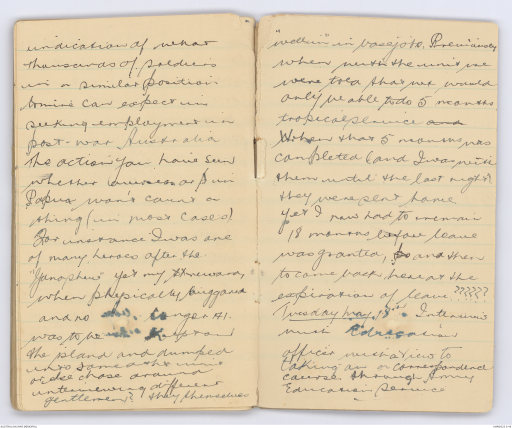 indication of what
thousands of soldiers
in a similar position
to mine can expect in
seeking employment in
post-war Australia
the action you have seen
whether overseas or in
Papua wont count a
thing (in most cases)
For instance I was one
of many heroes after the
"Japs" yet my threw away
when physically buggared
and no longer A1.
was to be
the island and dumped
into some
or else chase around
interviewing different
gentlemen? they themselves
in base jobs. Previously
when with the unit we
were told that we would
only be able to do 5 months
tropical service
When that 5 months was
completed (and I was with
them until the last night)
they were sent home
yet I now had to remain
18 months before leave
was granted, and then
to come back here at the
expiration of leave ?????
Tuesday May 15th Interview
with Education
officer with a view to
taking an correspondence
course through Army
Education Service